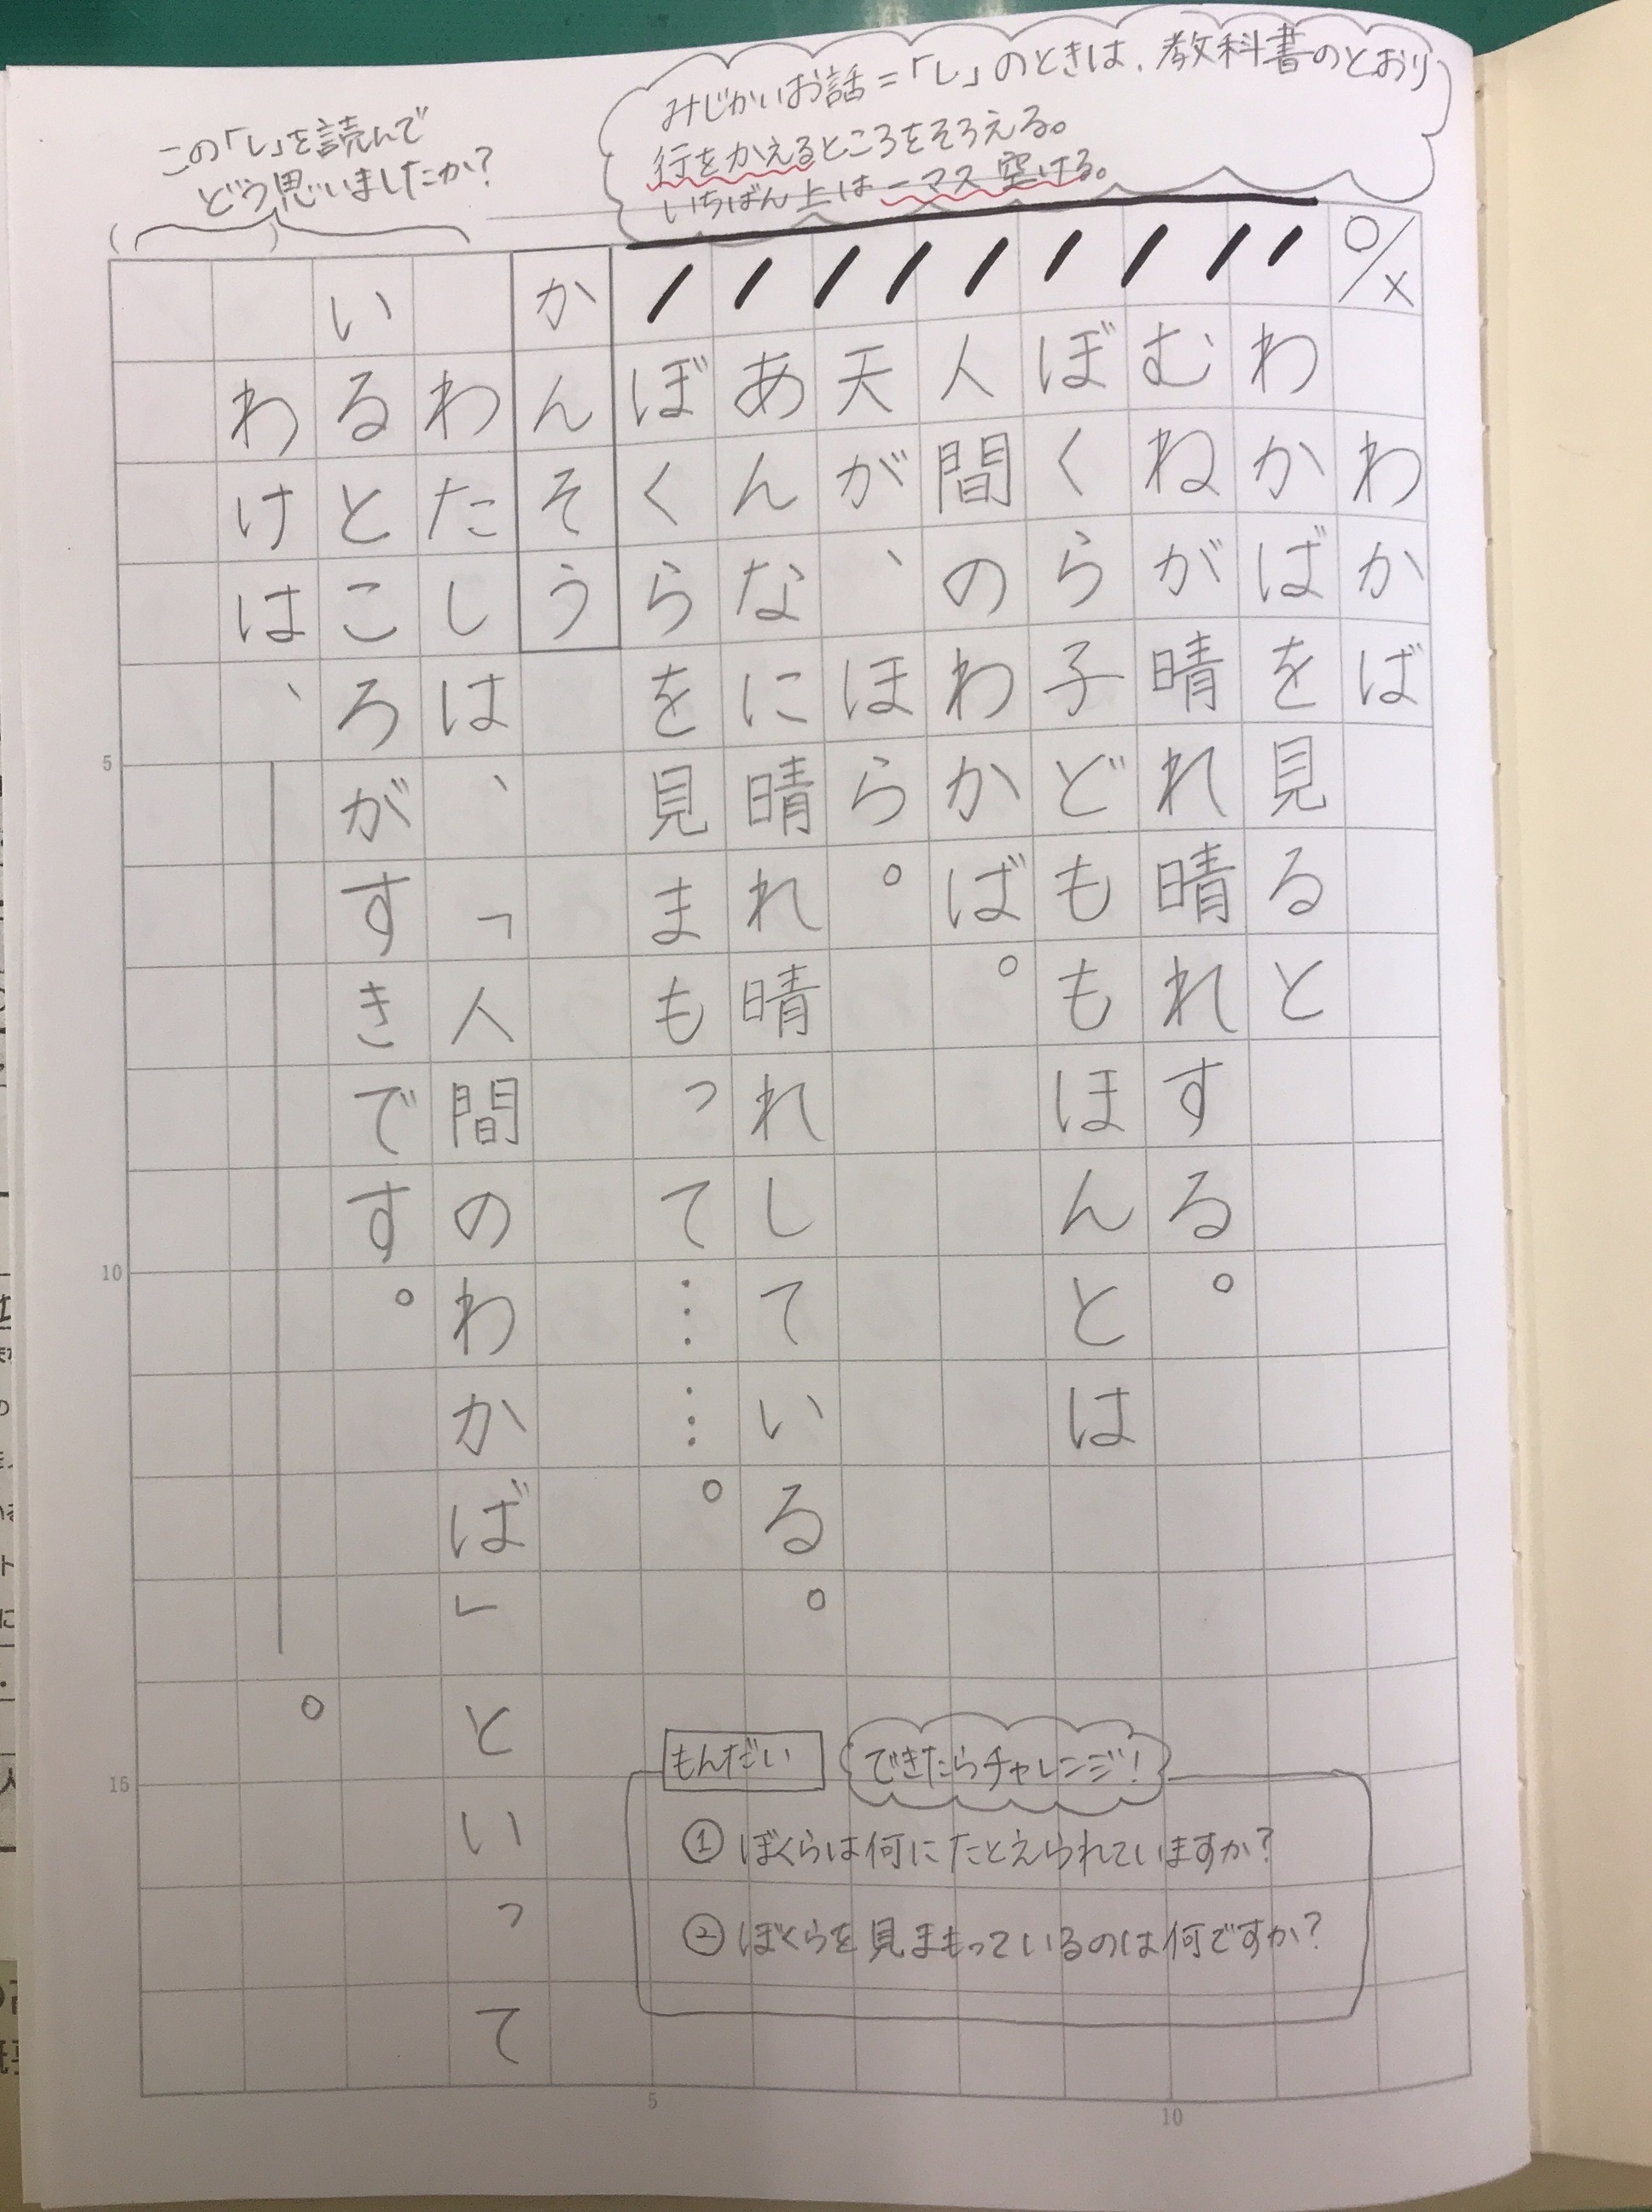 みじかいお話=「し」のときは、教科書のとおり
行をかえるところをそろえる。
いちばん上は一マス空ける。
○/×
わかば
わかばを見ると
むねが晴れ晴れする。
ぼくら子どももほんとは
人間のわかば。
天が、ほら。
あんなに晴れ晴れしている。
ぼくらを見まもって……。
この「し」を読んで
どう思いましたか?
かんそう
わたしは、「人間のわかば」といって
いるところがすきです。
わけは、
。
もんだい
できたらチャレンジ!
① ぼくらは何にたとえられていますか?
② ぼくらを見まもっているのは何ですか?
5
10
15
5
10